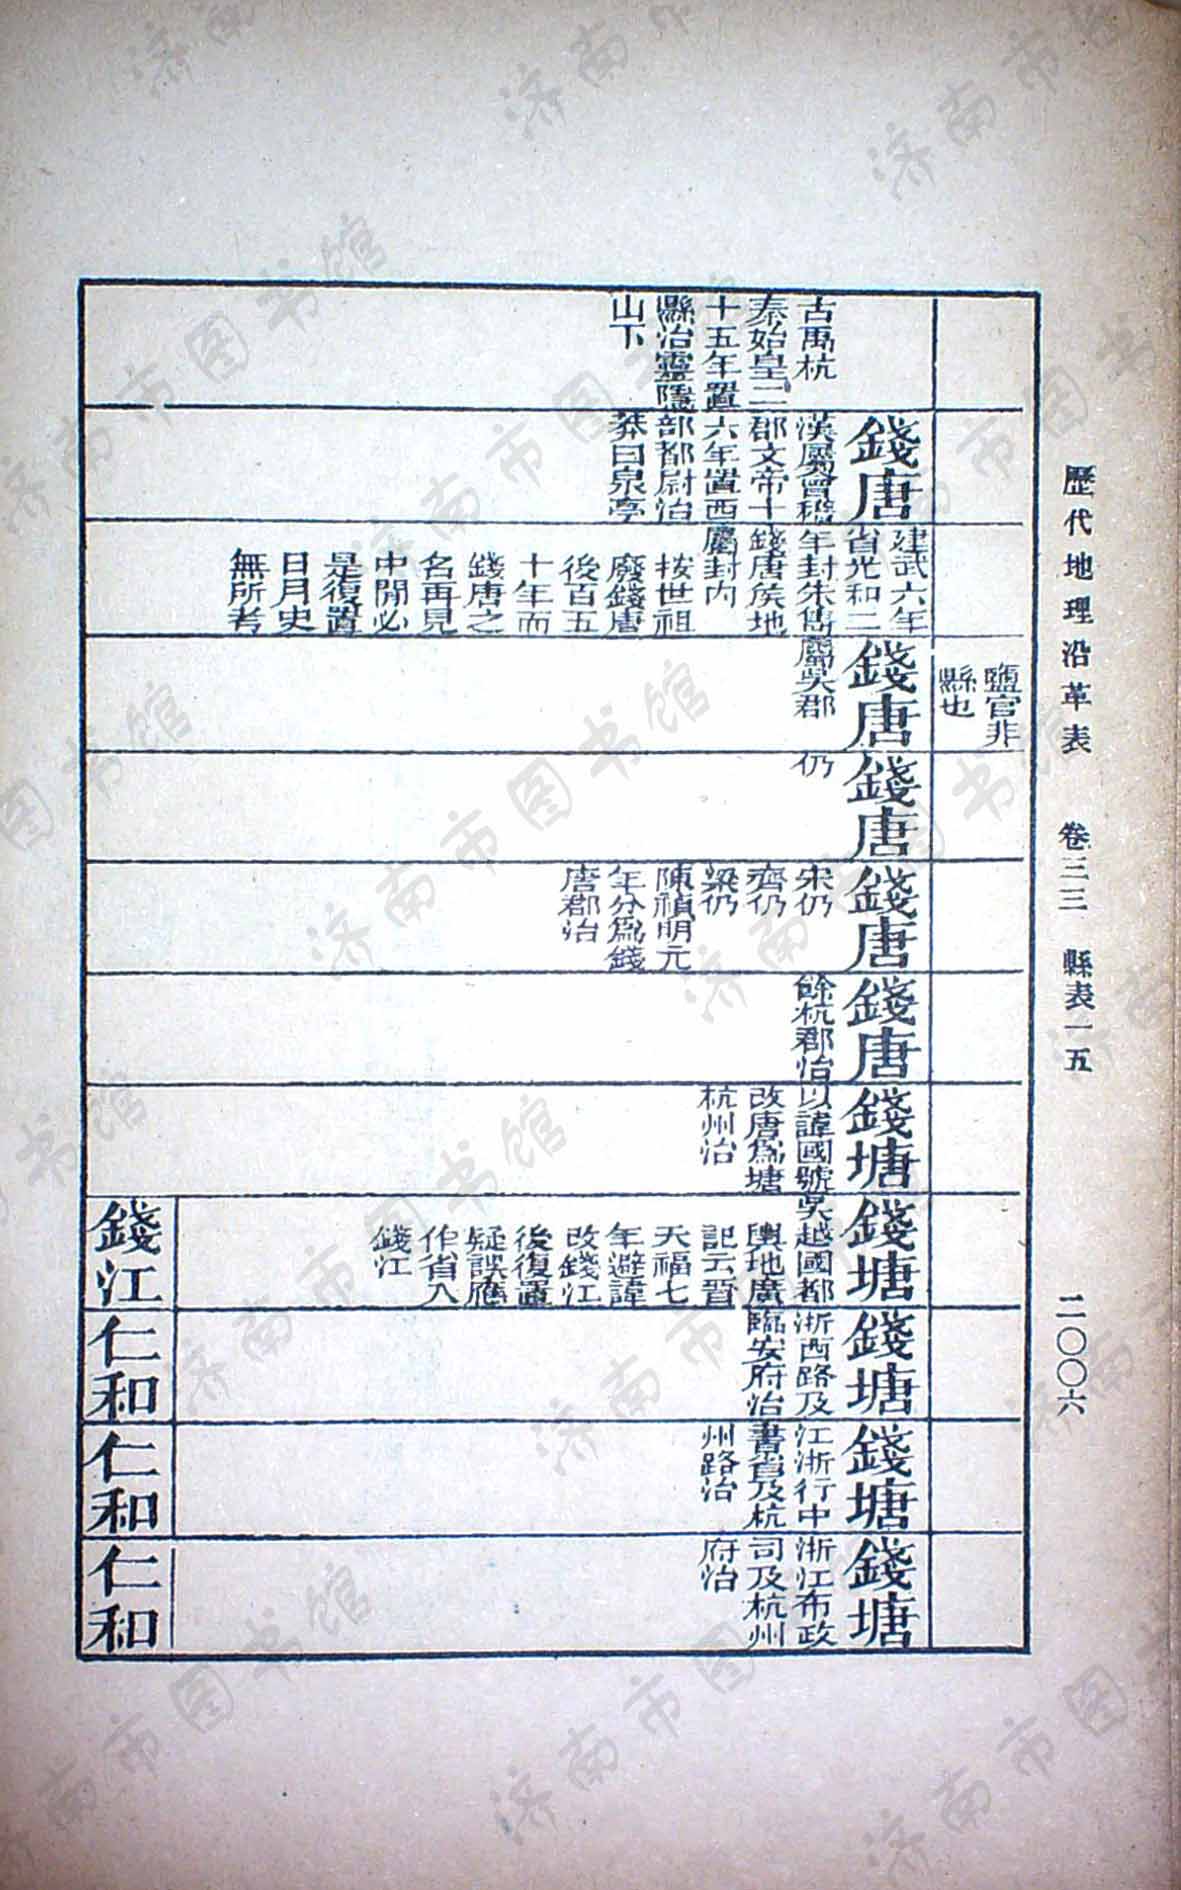 歷代地理沿革表 卷三三 縣表一五 二〇〇六
鹽官非
縣也
古禹杭
秦始皇二
十五年置
縣治靈隱
山下
錢唐
漢屬會稽
郡文帝十
六年置西
部都尉治
莽曰泉亭
建武六年
省光和二
年封朱雋
錢唐侯地
屬封內
按世祖
廢錢唐
後百五
十年而
錢唐之
名再見
中間必
是復置
日月史
無所考
錢唐
屬吳郡
錢唐
仍
錢唐
宋仍
齊仍
梁仍
陳禎明元
年分爲錢
唐郡治
錢唐
餘杭郡治
錢塘
以諱國號
改唐爲塘
杭州治
錢塘
吳越國都
輿地廣
記云晋
天福七
年避諱
改錢江
後復置
疑誤應
作省入
錢江
錢江
錢塘
浙西路及
臨安府治
仁和
錢塘
江浙行中
書省及杭
州路治
仁和
錢塘
浙江布政
司及杭州
府治
仁和
济南市图书馆